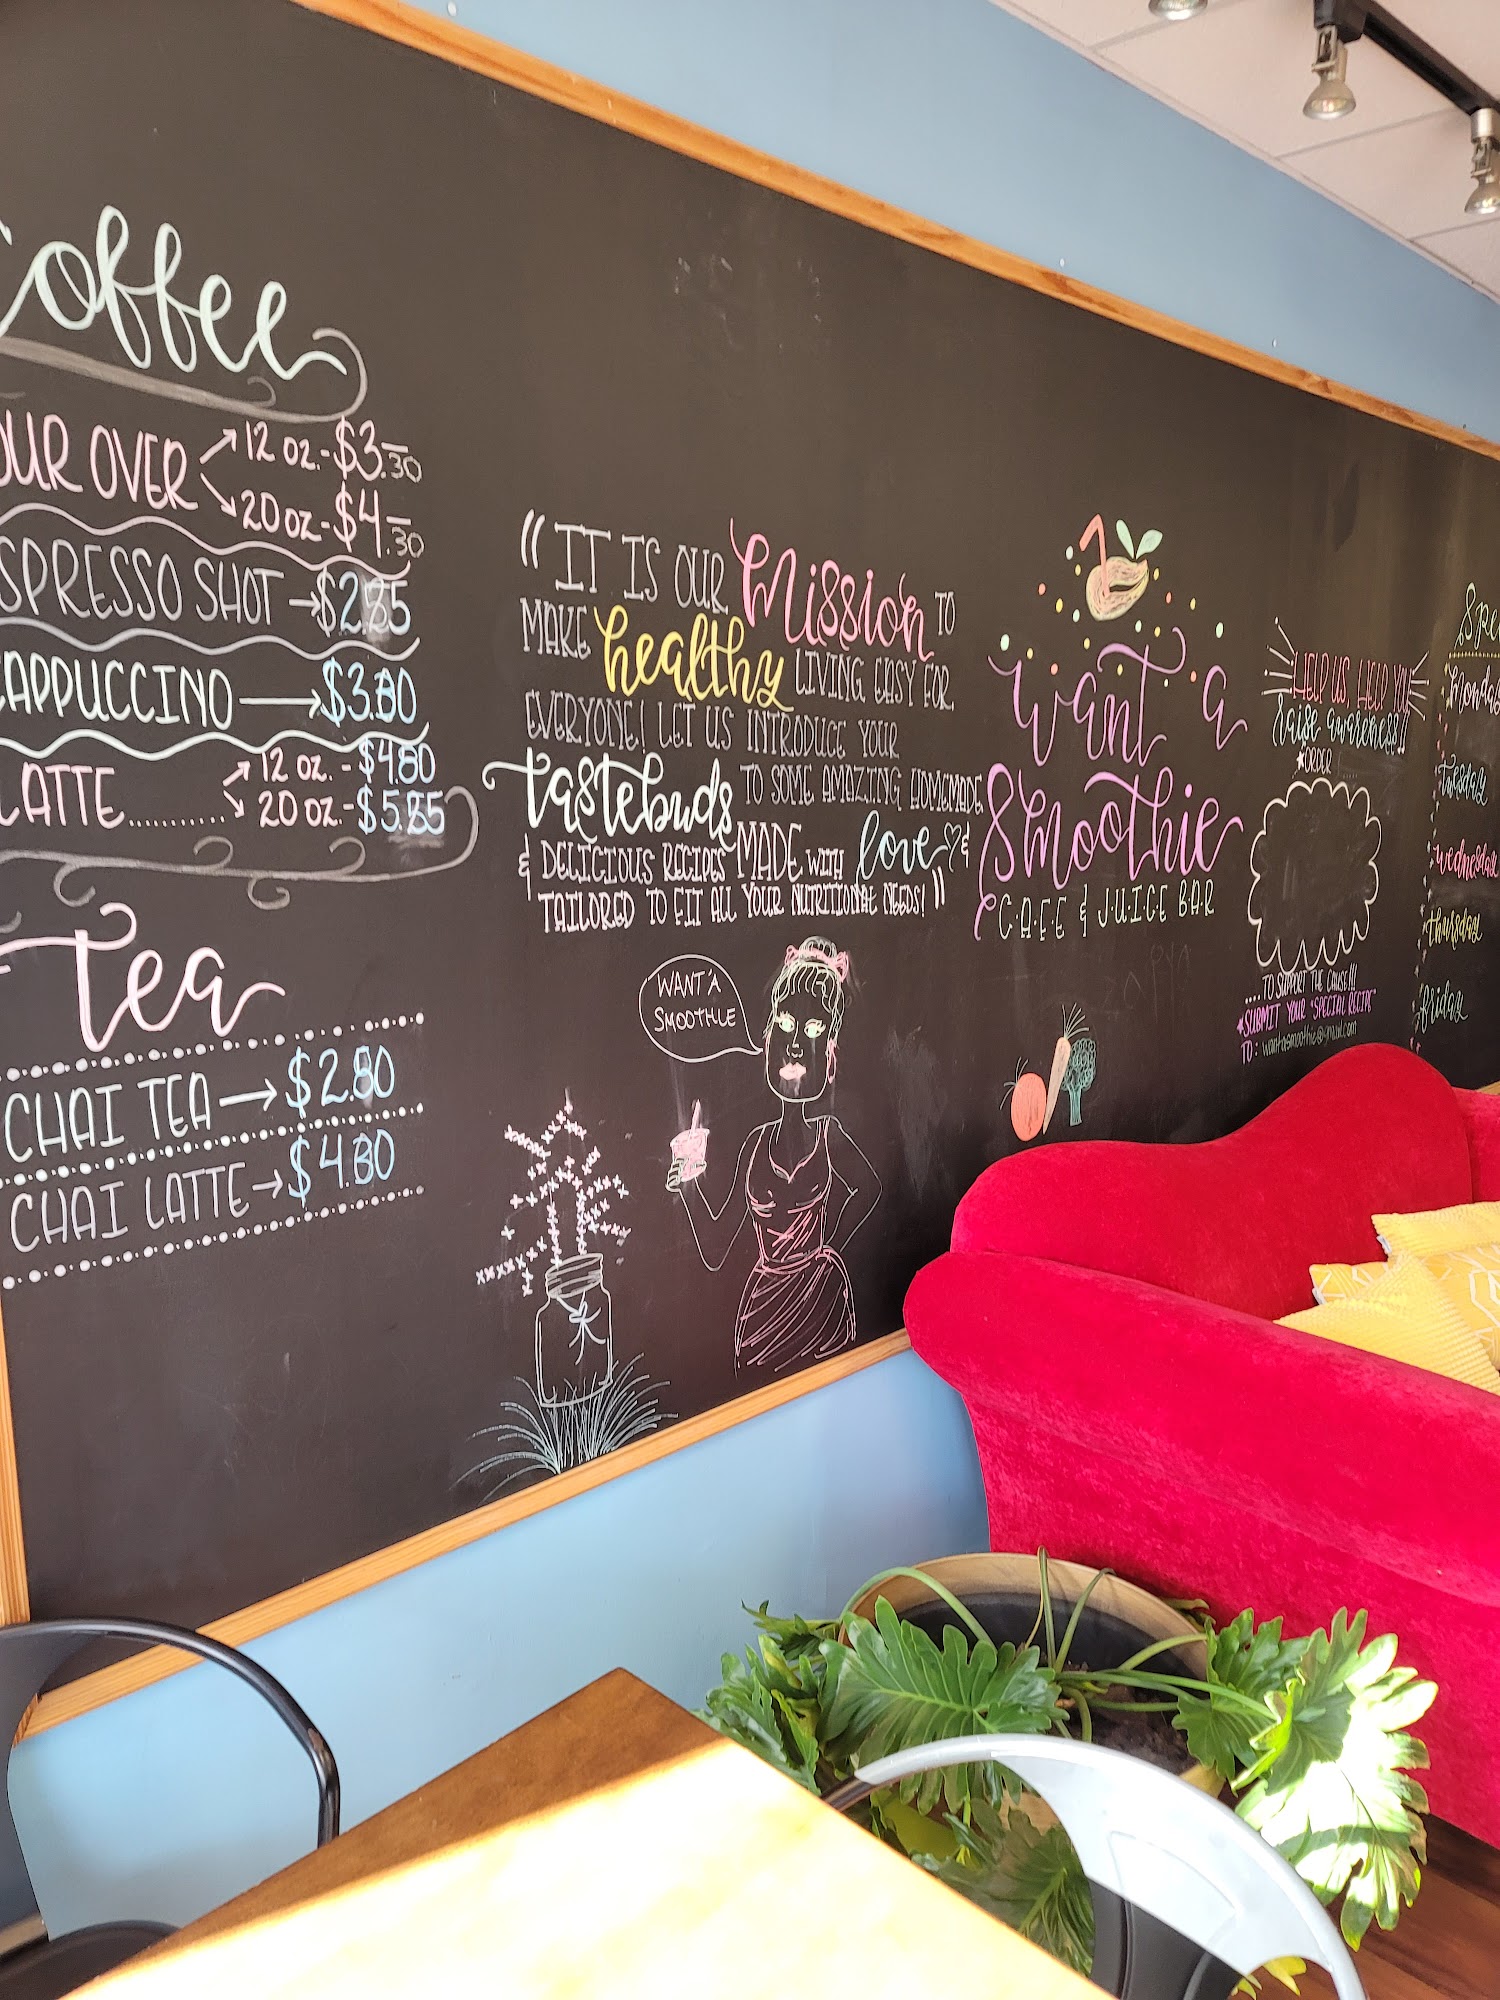 Coffee
OUR OVER
12 oz.- $3.30
20 oz.- $4.30
SPRESSO SHOT →
CAPPUCCINO →
LATTE..........
12 oz. - $4.80
20 oz.- $5.85
Tea
CHAI TEA →
CHAI LATTE →
"IT IS OUR mission TO
MAKE healthy LIVING EASY FOR
EVERYONE! LET US INTRODUCE YOUR
tastebuds TO SOME AMAZING HOMEMADE
& DELICIOUS RECIPES MADE WITH love ♡ &
TAILORED TO FIT ALL YOUR NUTRITIONAL NEEDS!"
WANT A
SMOOTHIE
Want a
Smoothie
C·A·F·E & J·U·I·C·E BAR
HELP US, HELP YOU
Raise awareness!!
★ORDER
....TO SUPPORT THE CAUSE!!!
★SUBMIT YOUR "SPECIAL RECIPE"
TO: wantasmoothie@gmail.com
Spe
Monday
Tuesday
Wednesday
Thursday
Friday